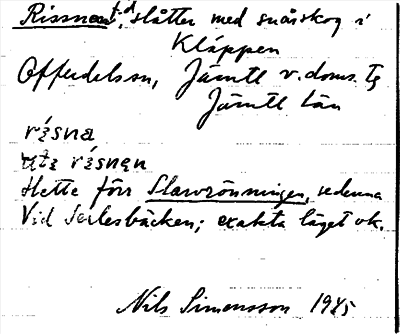 Rissnan, slåtter med småskog i
Kläppen
Offerdalssn, Jämtl v. doms. Tg
Jämtl län
résna
uti résnan
Hette förr Slawrönningen, sedenna
Vid bäcken; exakta läget ok.
Nils Simonsson 1915